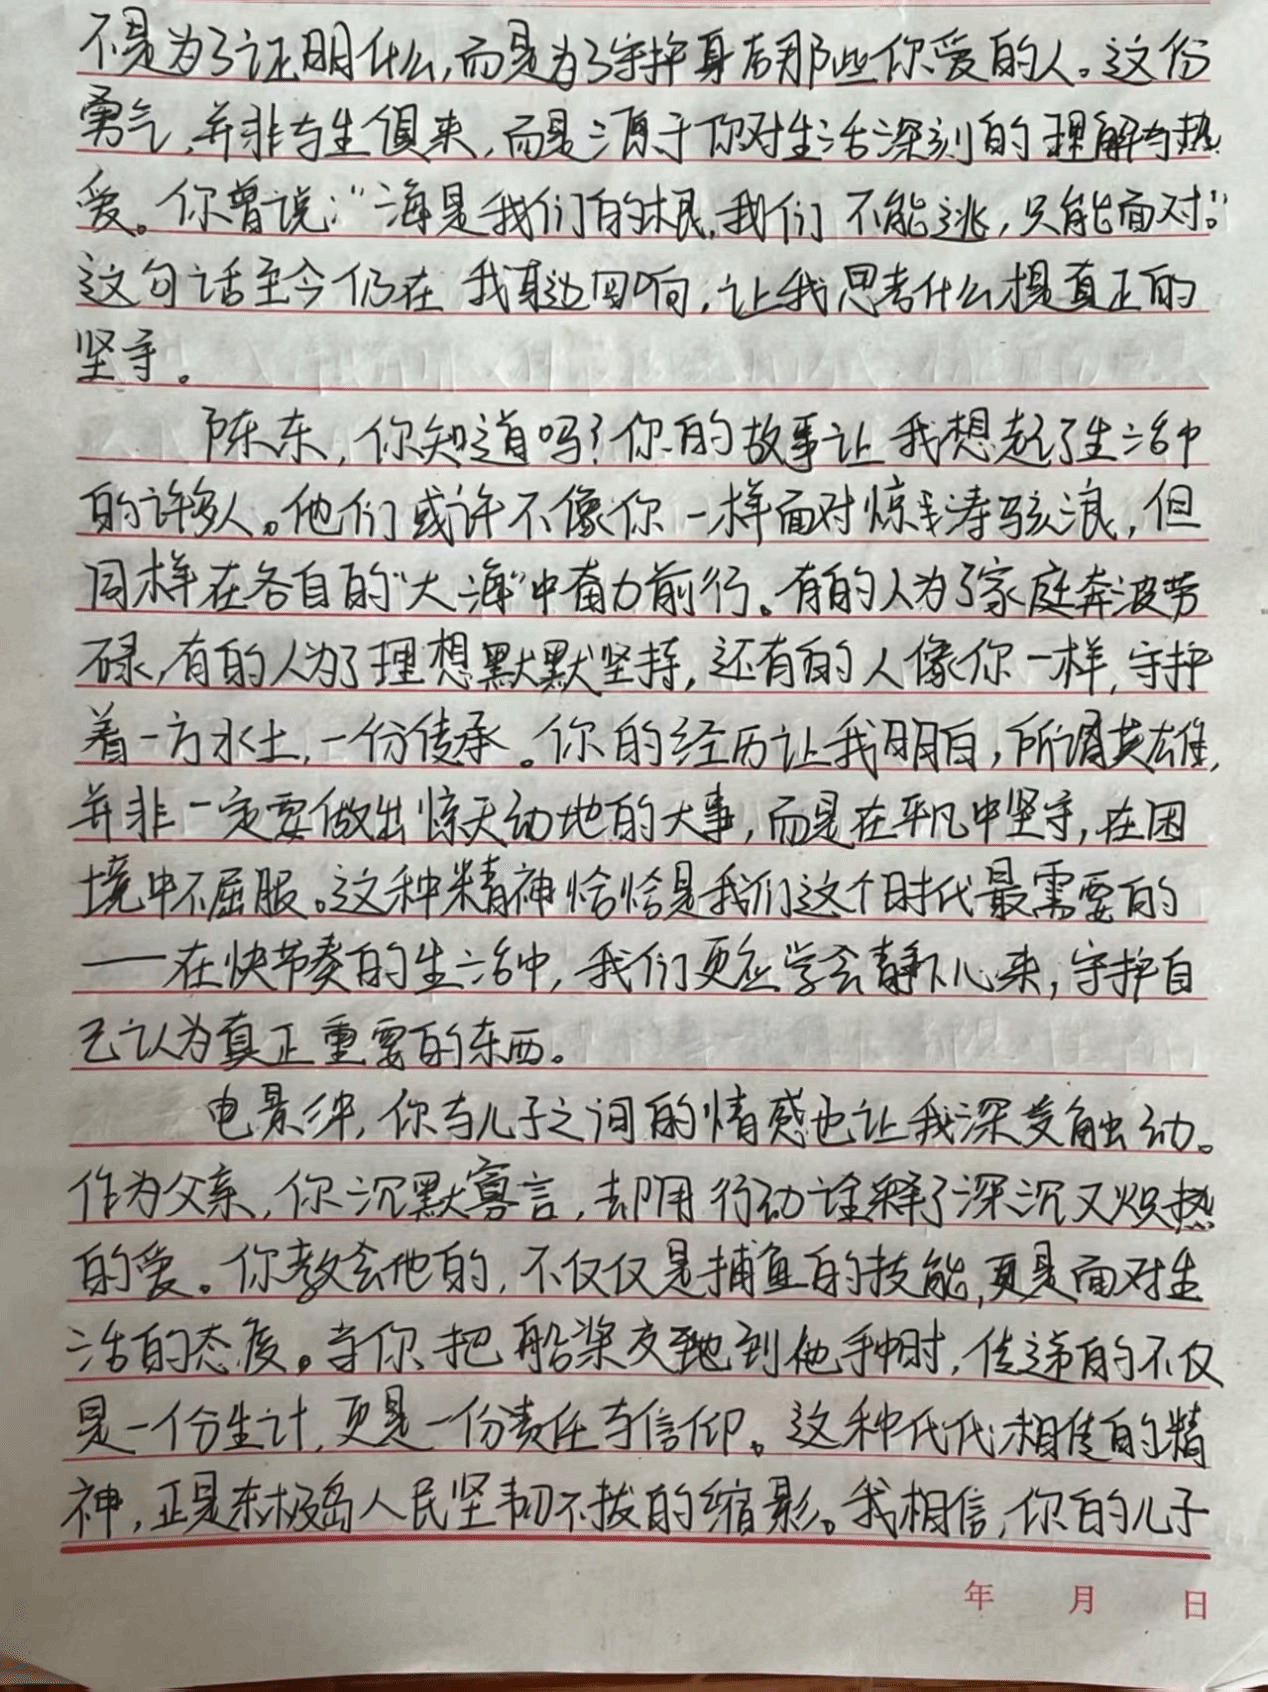 不是为了证明什么,而是为了守护身后那些你爱的人。这份
勇气,并非与生俱来,而是源于你对生活深刻的理解与热
爱。你曾说:“海是我们的根,我们不能逃,只能面对。”
这句话至今仍在我耳边回响,让我思考什么才是真正的
坚守。
陈东,你知道吗?你的故事让我想起了生活中
的许多人。他们或许不像你一样面对惊涛骇浪,但
同样在各自的“大海”中奋力前行。有的人为了家庭奔波劳
碌,有的人为了理想默默坚持,还有的人像你一样,守护
着一方水土,一份传承。你的经历让我明白,所谓英雄,
并非一定要做出惊天动地的大事,而是在平凡中坚守,在困
境中不屈服。这种精神恰恰是我们这个时代最需要的
——在快节奏的生活中,我们更应学会静下心来,守护自
己认为真正重要的东西。
电影中,你与儿子之间的情感也让我深受触动。
作为父亲,你沉默寡言,却用行动诠释了深沉又炽热
的爱。你教会他的,不仅仅是捕鱼的技能,更是面对生
活的态度。当你把船桨交到他手中时,传递的不仅
是一份生计,更是一份责任与信仰。这种代代相传的精
神,正是东极岛人民坚韧不拔的缩影。我相信,你的儿子
年 月 日